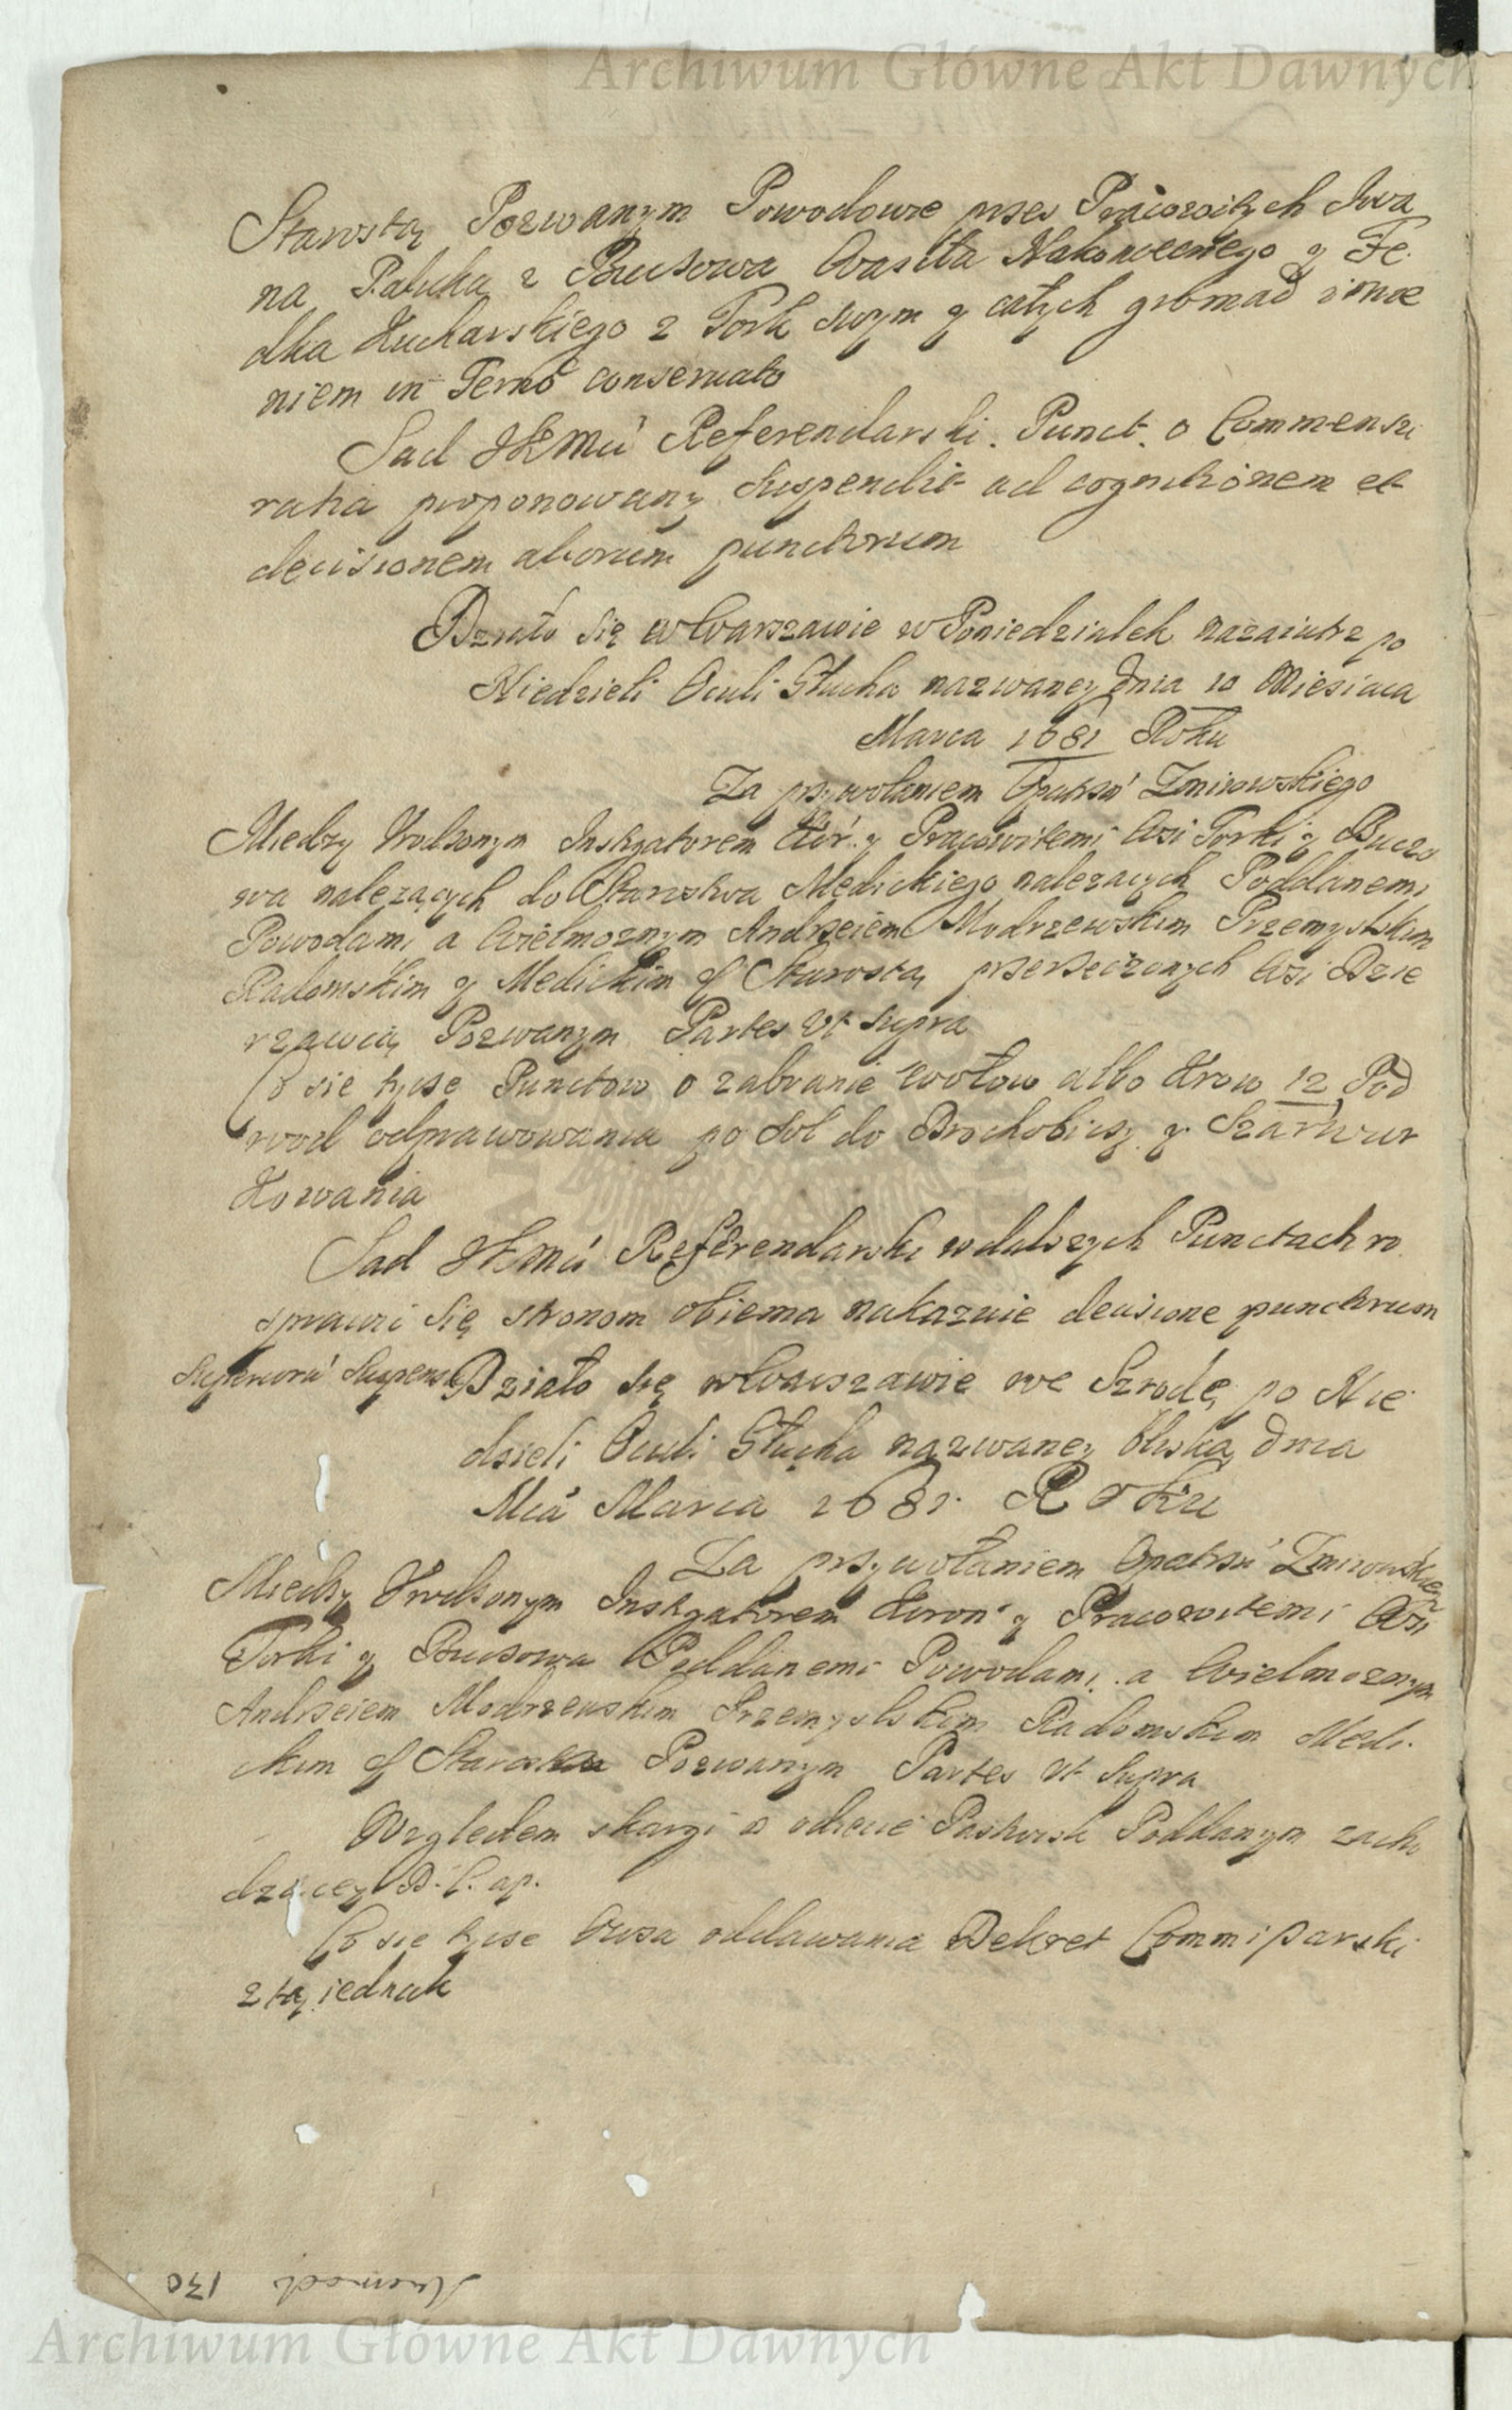 Archiwum Główne Akt Dawnych
Starostą Pozwanym Powodowie przes Pracowitych Iwa
na Paluka z Bucsowa Wasila Nakoneczne​go y Fe
dka Kucharskiego z Tork swym y całych gromad imie
niem in Termo conservato
Sad JKMci Referendarski Punct o Commensu
ratia proponowany suspendit ad cognitionem et
decisionem aliorum punctorum
Działo się w Warszawie w Poniedziałek nazaiutrz po
Niedzieli Oculi Głucha nazwaney dnia 10 Miesiaca
Marca 1681 Roku
Za przywołaniem Opatrzn Zmirowskiego
Miedzy Urodzonym Instygatorem Kor y Pracowitemi Wsi Torki y Buczo
wa należących do Starostwa Medickiego należacych Poddanemi
Powodami a Wielmoznym Andrzeiem Modrzewskim Przemyslskim
Radomskim y Medickim Starostą przerzeczonych Wsi Dzie
rzawcą Pozwanym Partes Vt supra
Co sie tycse Punctow o zabranie Wołow albo Krow 12 Pod
wod odprawowania po Sol do Drohobicsy y Szarwar
kowania
Sad JKMci Referendarski w dalszych Punctach ro
sprawic się stronom obiema nakazuie decisione punctorum
superiorum suspensa
Działo się w Warszawie we Szrodę po Nie
dzieli Oculi Głucha nazwaney bliską dnia
Mca Marca 1681 Roku
Za przywołaniem Opatrzn Zmirowskieg
Miedzy Urodzonym Instygatorem Koron y Pracowitemi Wsi
Torki y Bucsowa Poddanemi Powodami a Wielmoznym
Andrzeiem Modrzewskim Przemyslskim Radomskim Medi
ckim Starosta Pozwanym Partes Vt supra
Wzgledem skargi o odiecie Pastwisk Poddanym zacho
dzącey D. C. ap.
Co sie tycse Owsa oddawania Dekret Commissarski
z tą iednak
130
Archiwum Główne Akt Dawnych